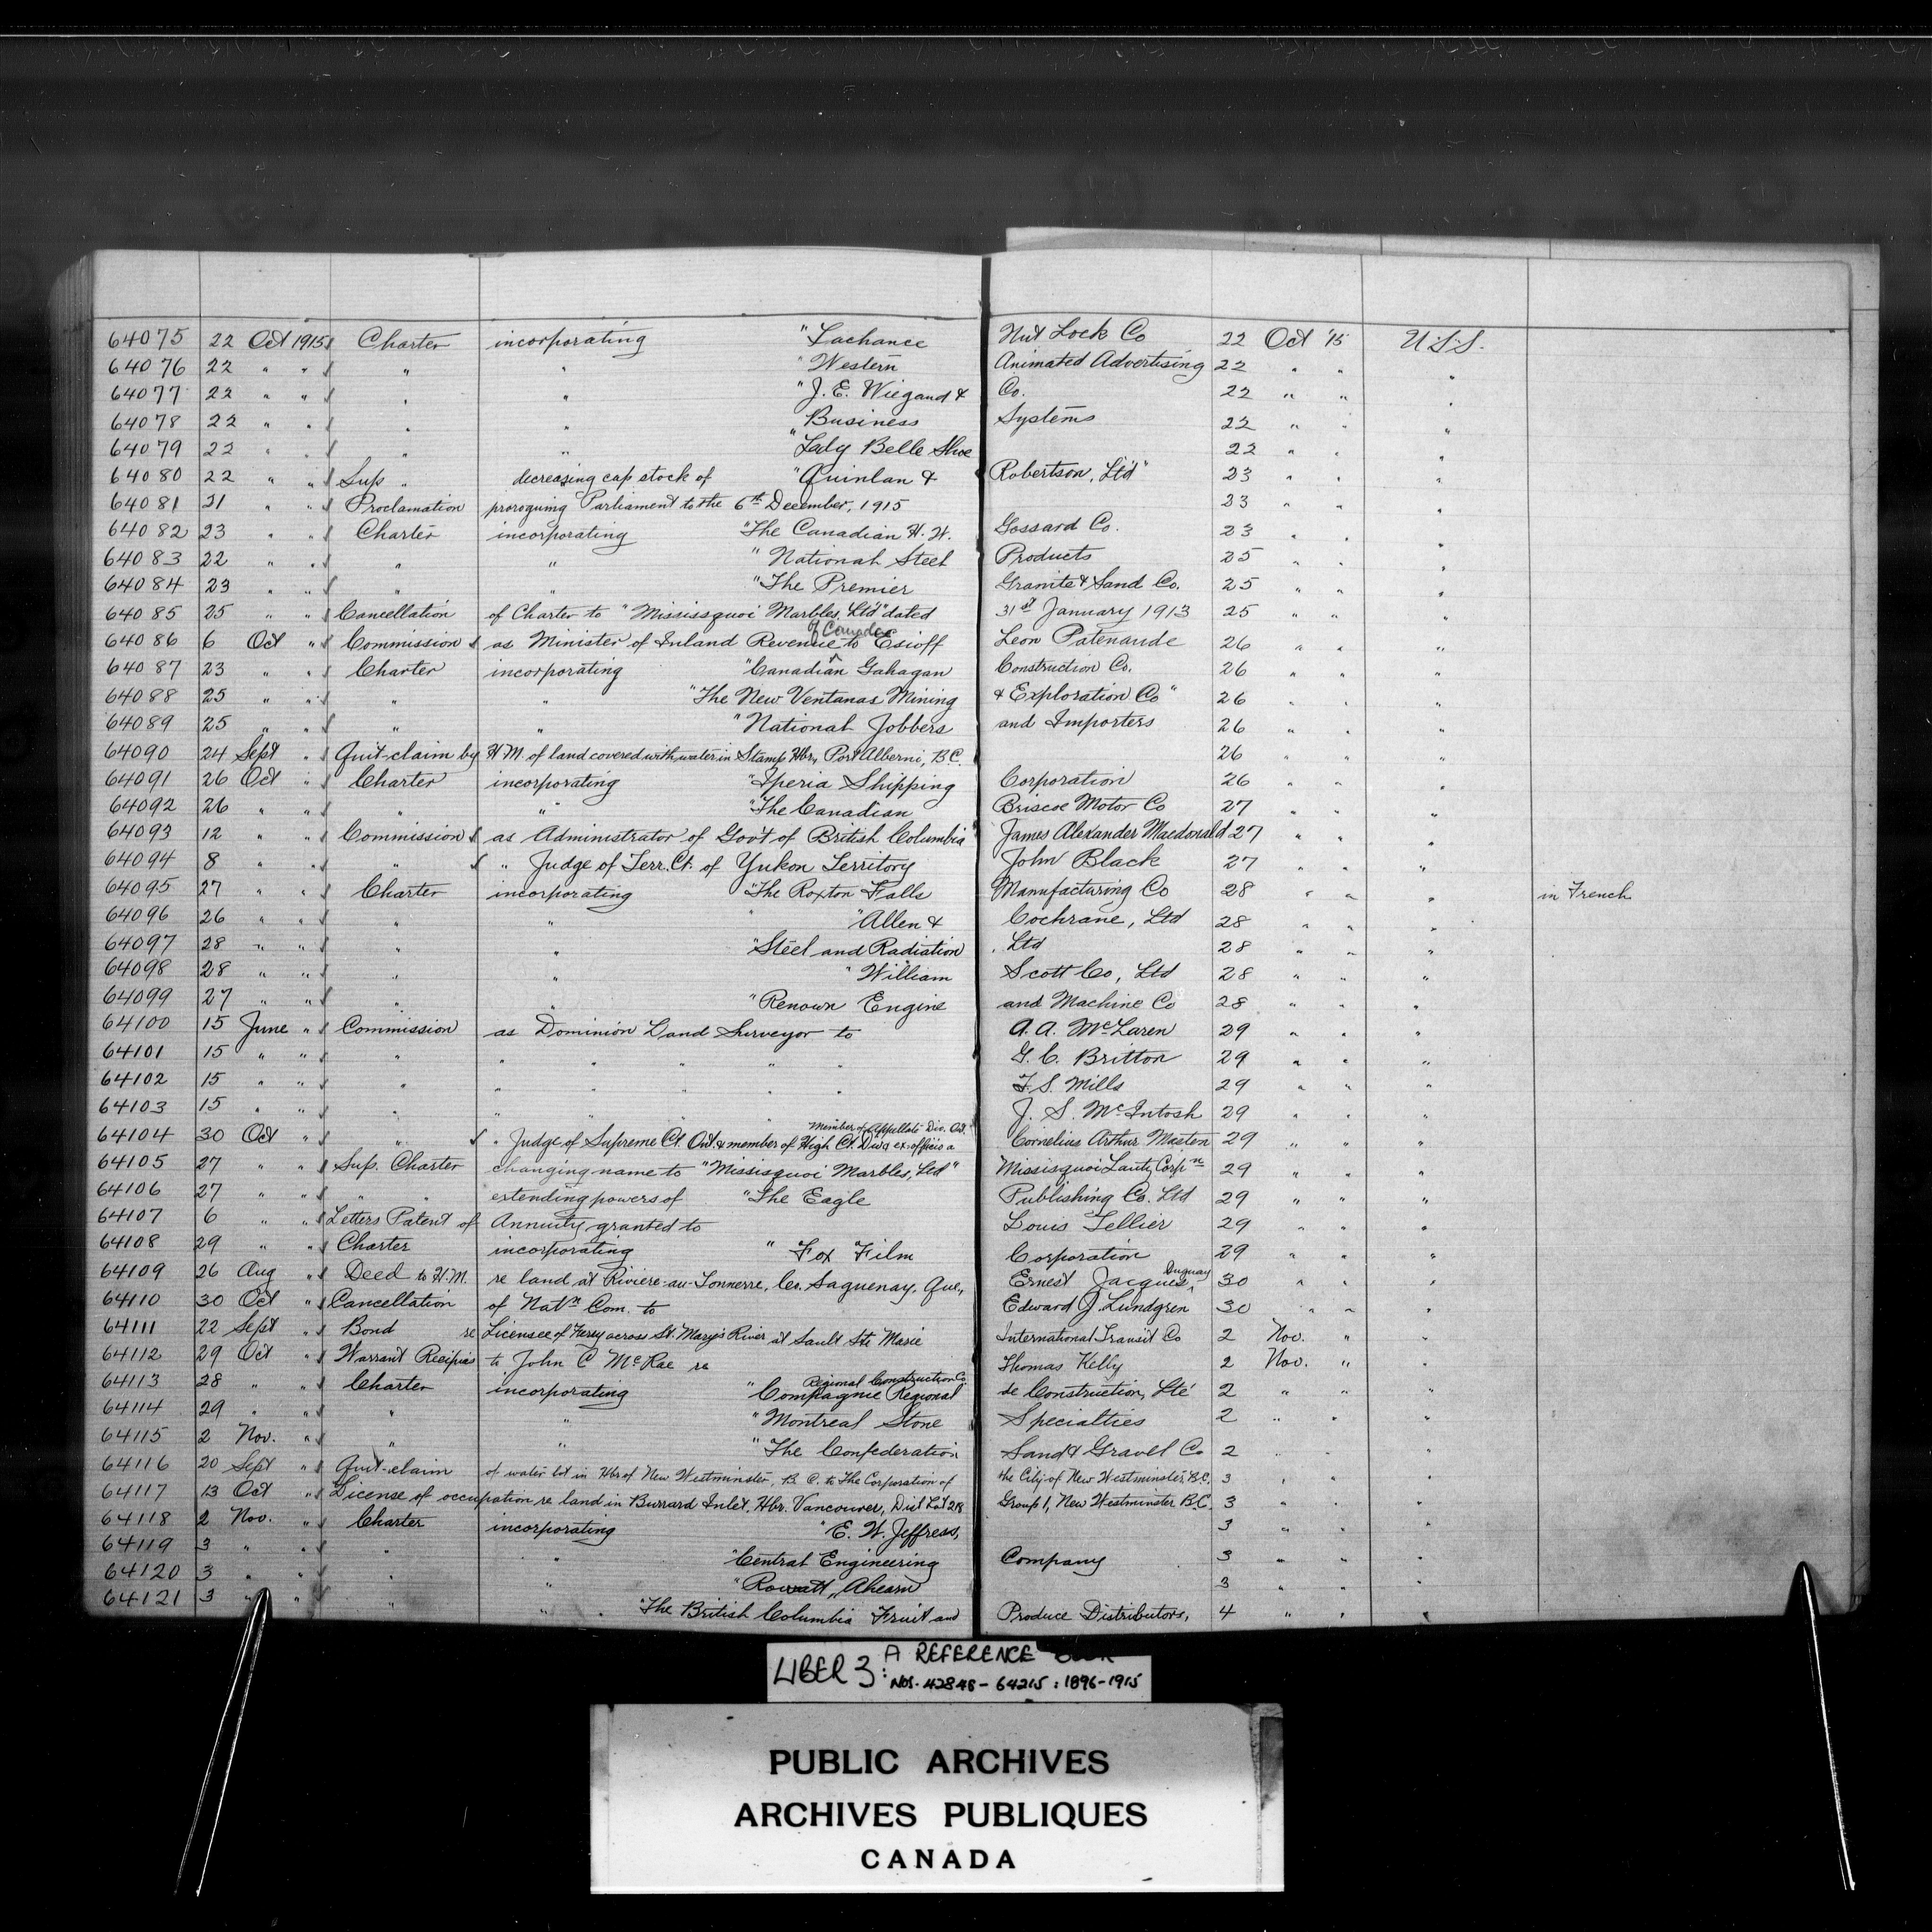 64075 22 Oct 1915 Charter incorporating "Lachance Nut Lock Co 22 Oct '15 U.S.S.
64076 22 " " " " "Western Animated Advertising 22 " " "
64077 22 " " " " "J. E. Wiegand & Co. 22 " " "
64078 22 " " " " "Business Systems 22 " " "
64079 22 " " " " "Lady Belle Shoe 22 " " "
64080 22 " " Sup " decreasing cap stock of "Quinlan & Robertson, Ltd" 23 " " "
64081 21 " " Proclamation proroguing Parliament to the 6th December, 1915 23 " " "
64082 23 " " Charter incorporating "The Canadian H. W. Gossard Co. 23 " " "
64083 22 " " " " "National Steel Products 25 " " "
64084 23 " " " " "The Premier Granite & Sand Co. 25 " " "
64085 25 " " Cancellation of Charter to "Mississquoi Marbles Ltd" dated 31st January 1913 25 " " "
64086 6 Oct " Commission as Minister of Inland Revenue of Canada to Esioff Leon Patenaude 26 " " "
64087 23 " " Charter incorporating "Canadian Gahagan Construction Co. 26 " " "
64088 25 " " " " "The New Ventanas Mining & Exploration Co" 26 " " "
64089 25 " " " " "National Jobbers and Importers 26 " " "
64090 24 Sept " Quit-claim by H.M. of land covered with water in Stamp Hbr, Port Alberni, B.C. 26 " " "
64091 26 Oct " Charter incorporating "Iperia Shipping Corporation 26 " " "
64092 26 " " " " "The Canadian Briscoe Motor Co 27 " " "
64093 12 " " Commission as Administrator of Gov't of British Columbia James Alexander Macdonald 27 " " "
64094 8 " " " " Judge of Terr. Ct. of Yukon Territory John Black 27 " " "
64095 27 " " Charter incorporating "The Roxton Falls Manufacturing Co 28 " " " in French
64096 26 " " " " "Allen & Cochrane, Ltd 28 " " "
64097 28 " " " " "Steel and Radiation, Ltd 28 " " "
64098 28 " " " " "William Scott Co, Ltd 28 " " "
64099 27 " " " " "Renown Engine and Machine Co 28 " " "
64100 15 June " Commission as Dominion Land Surveyor to A. A. McLaren 29 " " "
64101 15 " " " " " " " " G. C. Britton 29 " " "
64102 15 " " " " " " " " F. S. Mills 29 " " "
64103 15 " " " " " " " " J. S. McIntosh 29 " " "
64104 30 Oct " " " Judge of Supreme Ct. Ont & member of High Ct. Div & ex-officio a member of Appellate Div. Ont. Cornelius Arthur Masten 29 " " "
64105 27 " " Sup. Charter changing name to "Missisquoi Marbles, Ltd" Missisquoi Lautz Corpn 29 " " "
64106 27 " " " " extending powers of "The Eagle Publishing Co. Ltd 29 " " "
64107 6 " " Letters Patent of Annuity granted to Louis Tellier 29 " " "
64108 29 " " Charter incorporating "Fox Film Corporation 29 " " "
64109 26 Aug " Deed to H.M. re land at Riviere-au-Tonnerre, Co. Saguenay, Que., Ernest Jacques Duguay 30 " " "
64110 30 Oct " Cancellation of Natn Com. to Edward J. Lundgren 30 " " "
64111 22 Sept " Bond re Licensee of Ferry across St. Mary's River at Sault Ste Marie International Transit Co 2 Nov. " "
64112 29 Oct " Warrant Recipias to John C McRae re Thomas Kelly 2 Nov. " "
64113 28 " " Charter incorporating "Regional Construction Co Compagnie Regional de Construction, Lté 2 " " "
64114 29 " " " " "Montreal Stone Specialties 2 " " "
64115 2 Nov. " " " "The Confederation Sand & Gravel Co 2 " " "
64116 20 Sept " Quit-claim of water lot in Hbr of New Westminster, B. C. to The Corporation of the City of New Westminster, B.C. 3 " " "
64117 13 Oct " License of occupation re land in Burrard Inlet, Hbr. Vancouver, Dist Lot 218 Group 1, New Westminster B.C. 3 " " "
64118 2 Nov. " Charter incorporating "E. W. Jeffress, 3 " " "
64119 3 " " " " "Central Engineering Company 3 " " "
64120 3 " " " " "Rowatt, Ahearn 3 " " "
64121 3 " " " " "The British Columbia Fruit and Produce Distributors, 4 " " "
LIBER 3: A REFERENCE
NOS. 42848 - 64215 : 1896-1915
PUBLIC ARCHIVES
ARCHIVES PUBLIQUES
CANADA